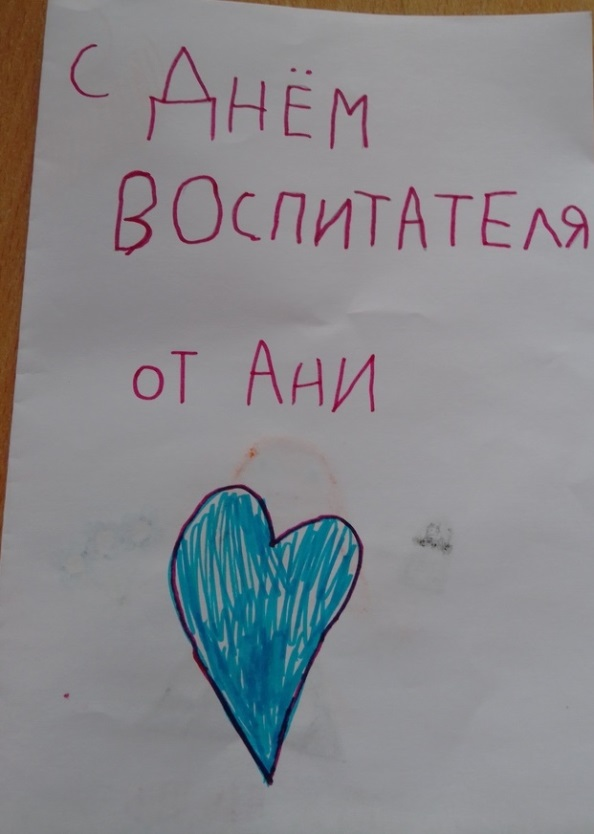 С ДНЁМ
ВОСПИТАТЕЛЯ
от Ани